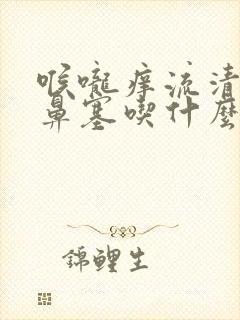 喉嚨痒流清
鼻塞喫什麼
錦鲤生